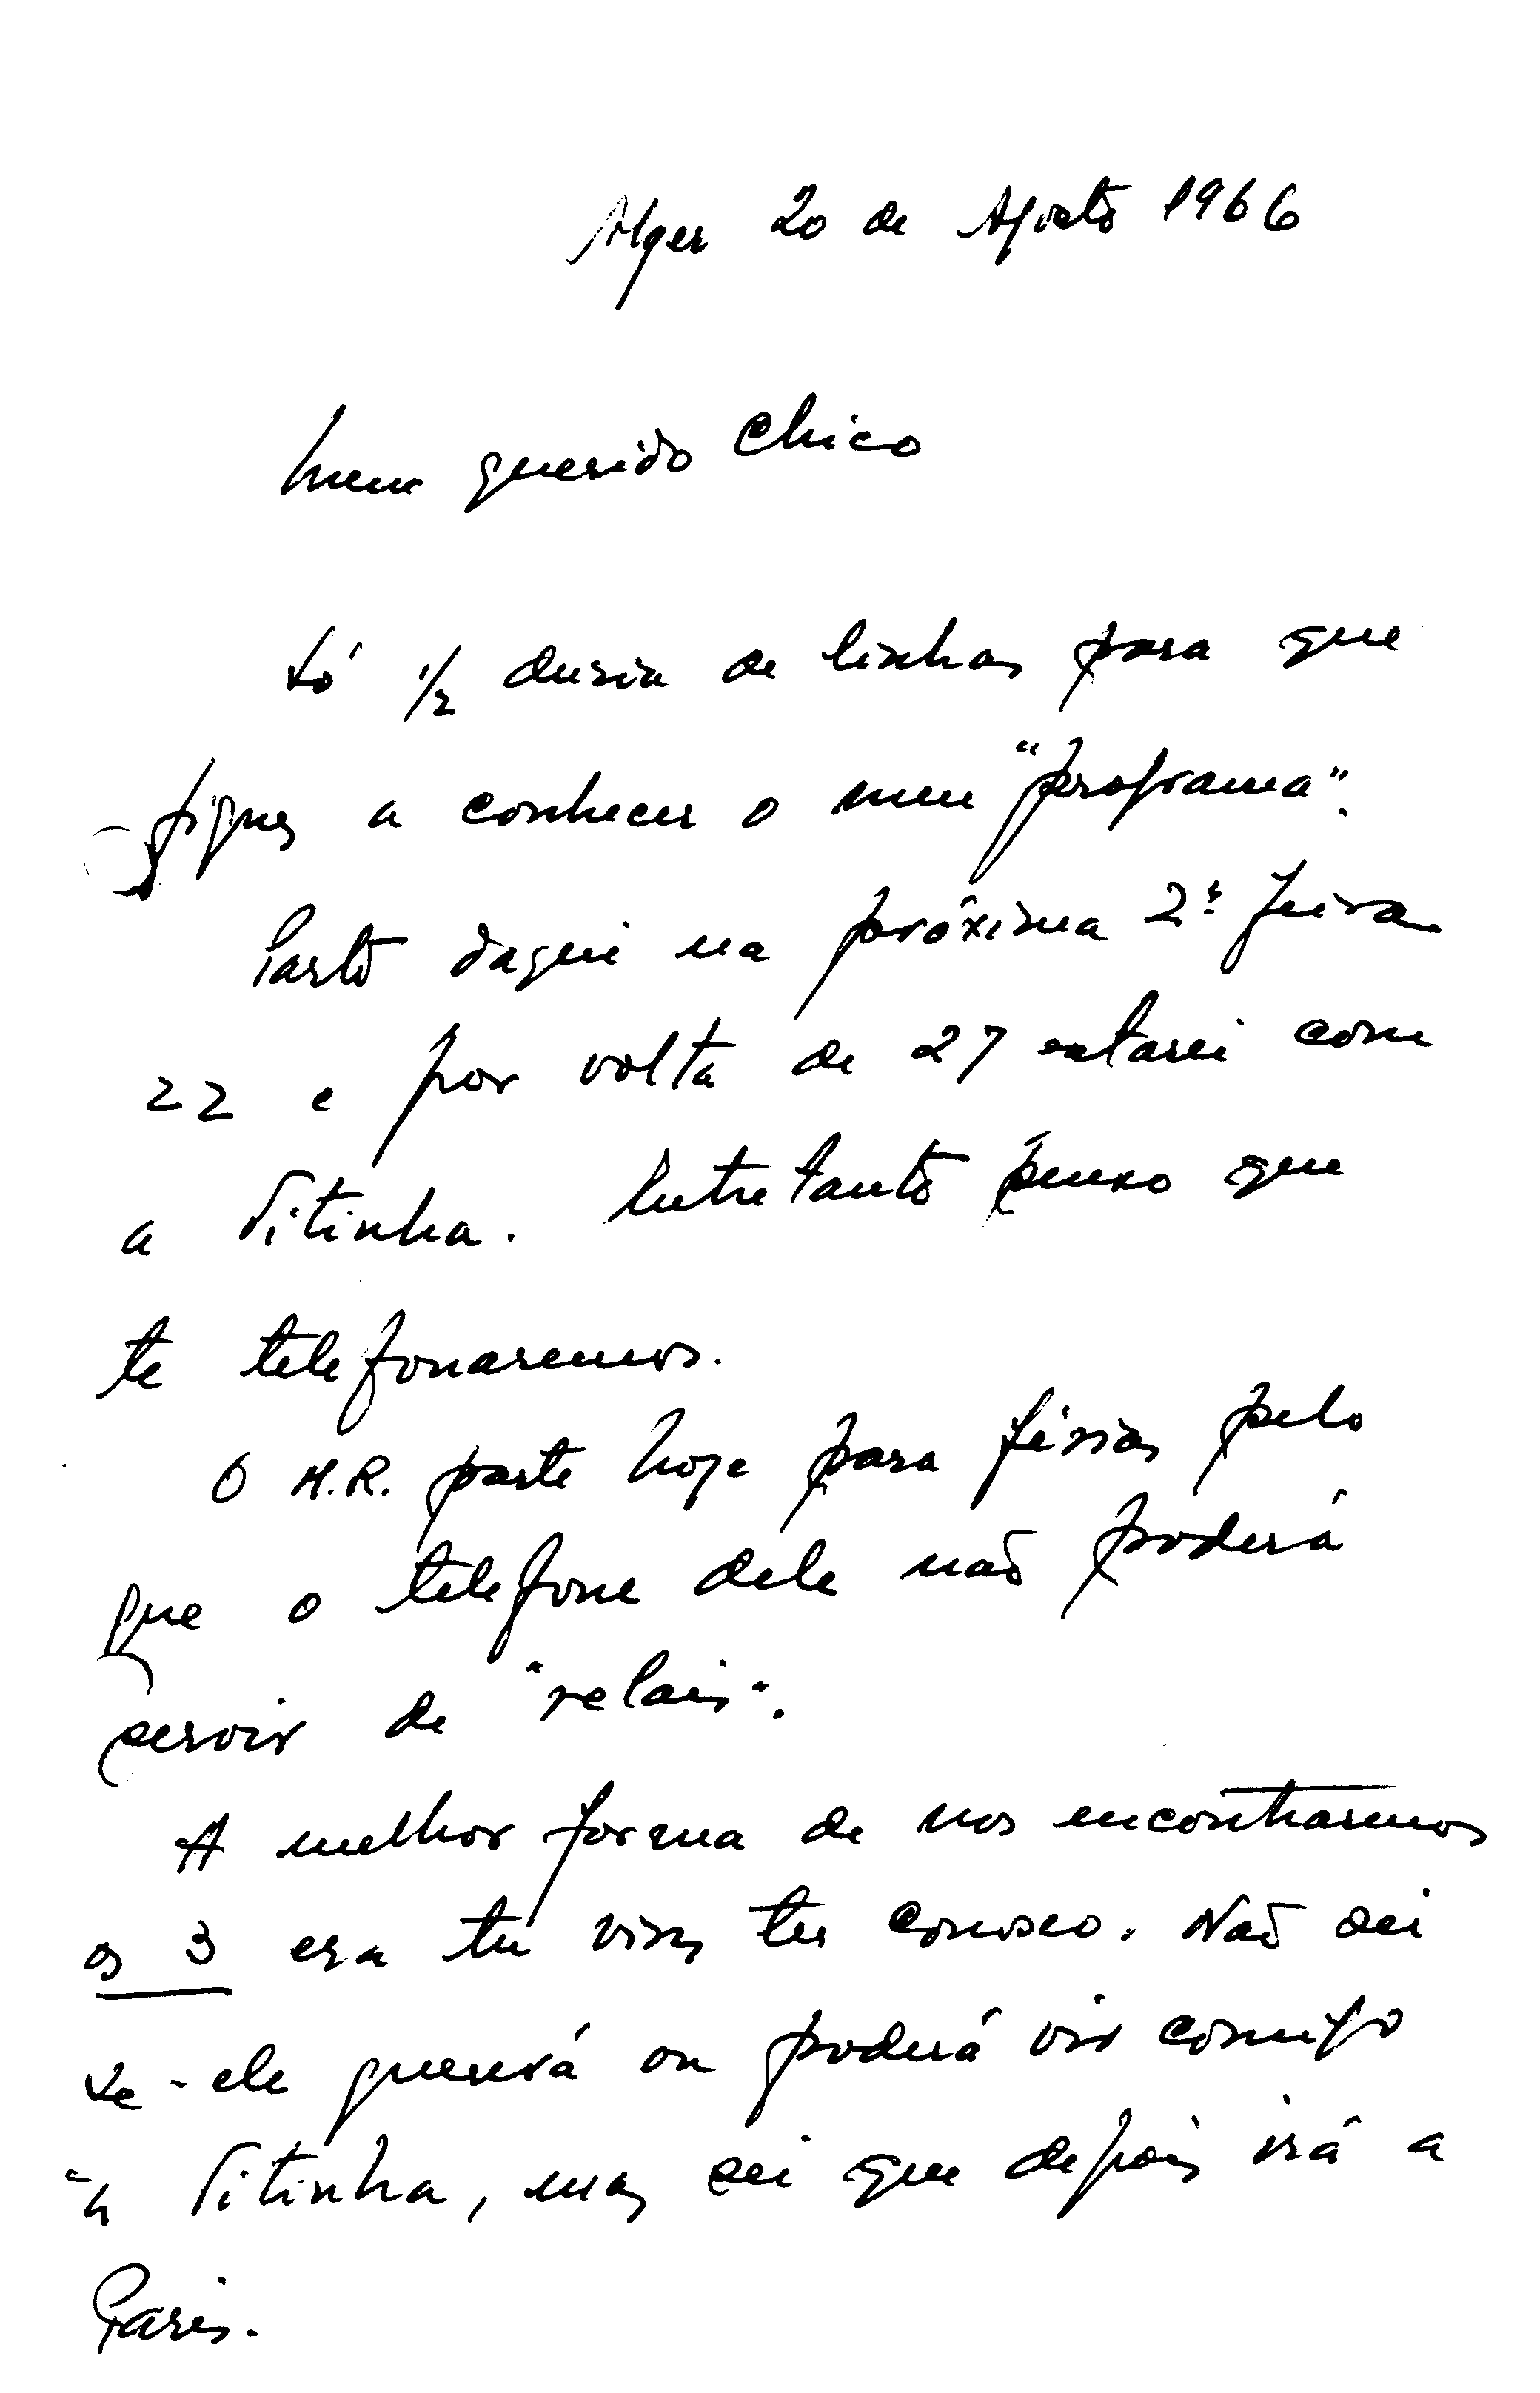 Alger 20 de Agosto 1966
Meu querido Chico
Só 1/2 duzia de linhas para que
fiques a conhecer o meu "programa".
Parto daqui na próxima 2ª feira
22 e por volta de 27 estarei com
a Titinha. Entretanto penso que
te telefonaremos.
O M.R. parte hoje para férias pelo
que o telefone dele não poderá
servir de "relais".
A melhor forma de nos encontrarmos
os 3 era tu vires ter conosco. Não sei
se ele quererá ou poderá vir comigo
à Titinha, mas sei que depois irá a
Paris.